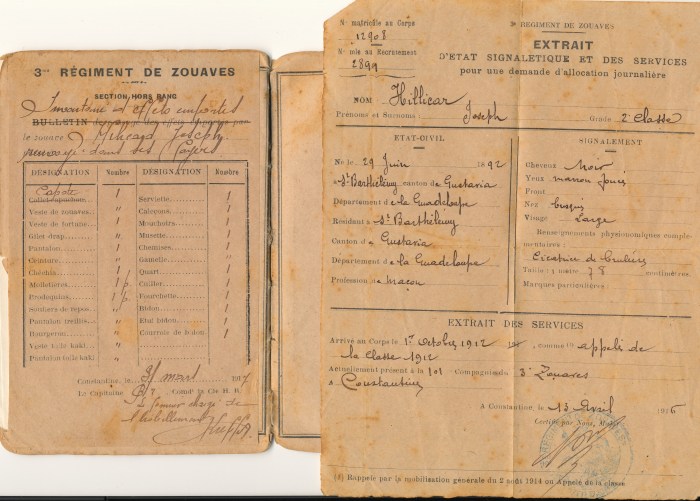 3me RÉGIMENT DE ZOUAVES
SECTION HORS RANG
Inventaire et effets emportés
BULLETIN
le zouave Hilicard Joseph
dans ses foyers
DÉSIGNATION Nombre DÉSIGNATION Nombre
Capote 1 Serviette 1
Veste de zouaves " Caleçons 1
Veste de fortune " Mouchoirs 1
Gilet drap " Musette 1
Pantalon 1 Chemises 1
Ceinture " Gamelle "
Chéchia 1 Quart 1
Molletières 1 p Cuiller 1
Brodequins 1 p Fourchette 1
Souliers de repos " Bidon 1
Pantalon treillis " Etui bidon "
Bourgeron " Courroie de bidon 1
Veste toile kaki "
Pantalon toile kaki "
Constantine, le 31 mars 1917
Le Capitaine Comdt la Cie H. R.
l'habillement
N° matricule au Corps
12908
N° mle au Recrutement
2899
3e RÉGIMENT DE ZOUAVES
EXTRAIT
D'ETAT SIGNALETIQUE ET DES SERVICES
pour une demande d'allocation journalière
NOM Hillicar
Prénoms et Surnoms : Joseph Grade 2e Classe
ÉTAT-CIVIL
Né le 29 Juin 1892
à St Barthélemy canton de Gustavia
Département de la Guadeloupe
Résidant à St Barthélemy
Canton de Gustavia
Département de la Guadeloupe
Profession de Maçon
SIGNALEMENT
Cheveux Noir
Yeux marron
Front
Nez
Visage Large
Renseignements physionomiques complé-
mentaires :
Cicatrice de
Taille : 1 mètre 78 centimètres.
Marques particulières :
EXTRAIT DES SERVICES
Arrivé au Corps le 1er Octobre 1912 comme (1) appelé de
la classe 1912
Actuellement présent à la 101 Compagnie du 3e Zouaves
à Constantine
A Constantine, le 13 Avril 1916
Certifié par Nous, Major
(1) Rappelé par la mobilisation générale du 2 août 1914 ou Appelé de la classe